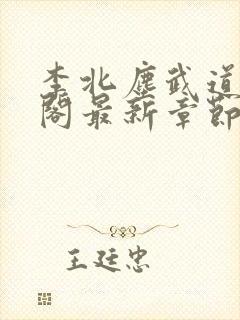 李北塵武道
閣最新章節
王廷忠